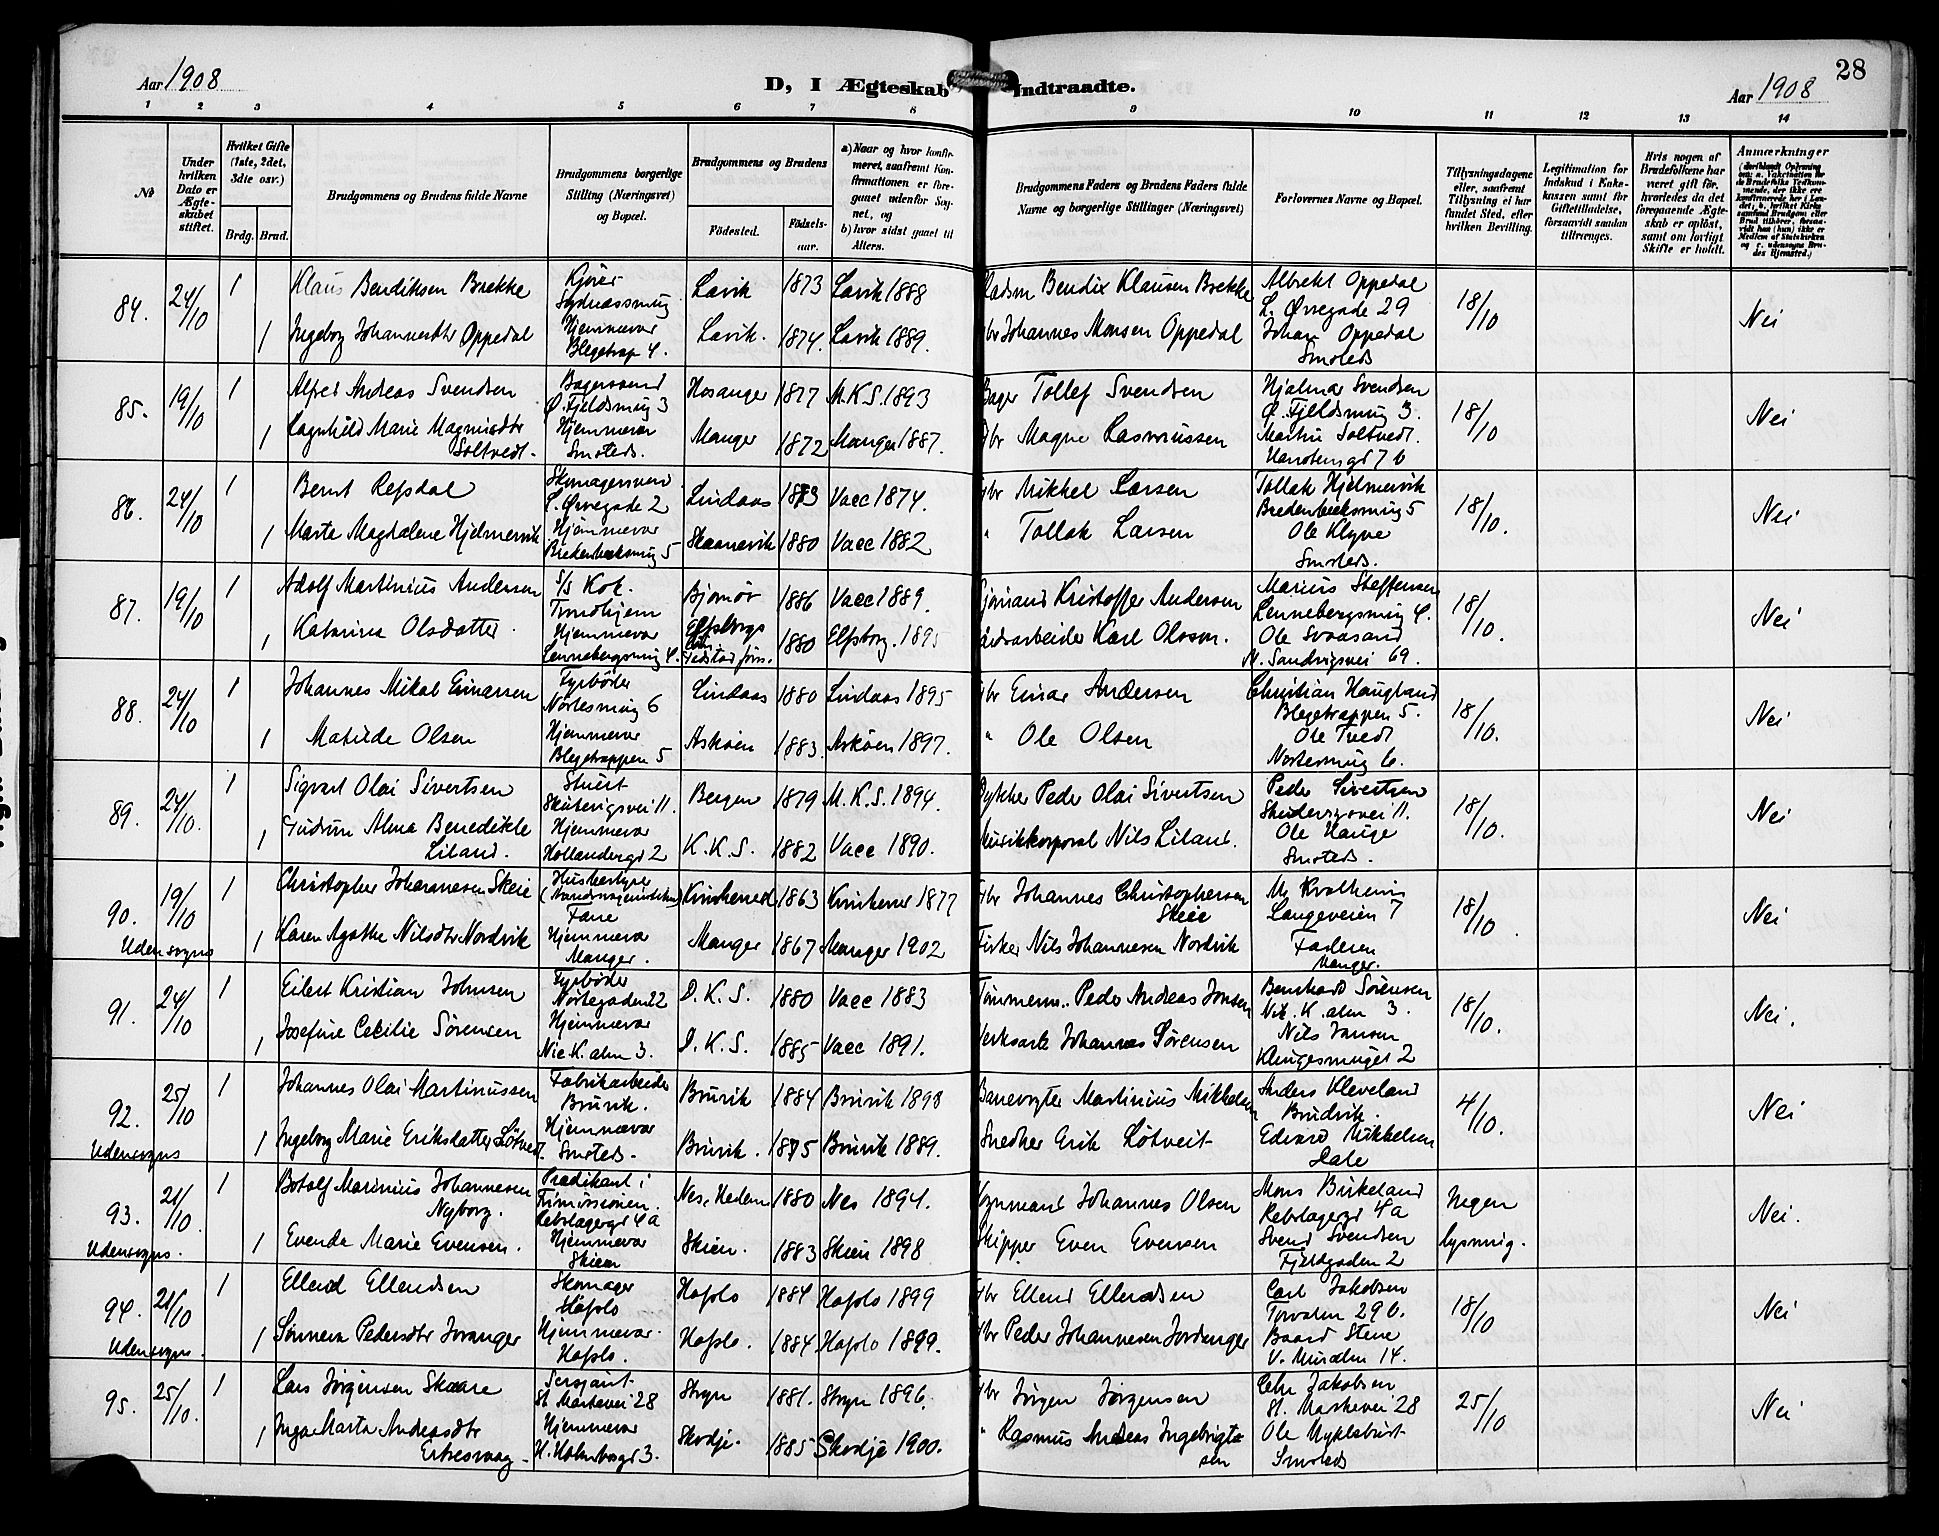 28
Aar 1908
D, I Ægteskab Indtraadte.
Aar 1908
1 2 3 4 5 6 7 8 9 10 11 12 13 14
No
Under hvilken Dato er Ægteskabet stiftet.
Hvilket Gifte (1ste, 2det, 3die osv.)
Brdg. Brud.
Brudgommens og Brudens fulde Navne
Brudgommens borgerlige Stilling (Næringsvei) og Bopæl.
Brudgommens og Brudens
Fødested. Fødselsaar.
a) Naar og hvor konfirmeret, saafremt Konfirmationen er foregaaet udenfor Sognet, og
b) hvor sidst gaaet til Alters.
Brudgommens Faders og Brudens Faders fulde Navne og borgerlige Stillinger (Næringsvei)
Forlovernes Navne og Bopæl.
Tillysningsdagene eller, saafremt Tillysning ei har fundet Sted, efter hvilken Bevilling.
Legitimation for Indskud i Enkekassen samt for Giftetilladelse, forsaavidt saadan tiltrænges.
Hvis nogen af Brudefolkene har været gift før, hvorledes da det foregaaende Ægteskab er opløst, samt om lovligt Skifte er holdt.
Anmærkninger
84. 24/10 1 Klaus Bendiksen Brekke Kjører Lavik 1873 Lavik 1888 Bendix Klausen Brekke Albrekt Oppedal L. Øvregade 29 18/10 Nei
1 Ingeborg Johannesdtr Oppedal Hjemmevær Blegetrap 4. Lavik. 1874. Lavik 1889. Johannes Monsen Oppedal Johan Oppedal Smsteds
85. 19/10 1 Alfred Andreas Svendsen Bagersvend Ø. Fjeldsmug 3 Hosanger 1877 M.K.S. 1893 Bager Tollef Svendsen Hjalmar Svendsen Ø. Fjeldsmug 3. 18/10 Nei
1 Ragnhild Marie Magnusdtr Soltvedt. Hjemmevær Smsteds. Manger 1872 Manger 1887. Magne Rasmussen Martin Soltvedt.
86. 24/10 1 Bernt Refsdal Skomagersvend L. Øvregade 2 Lindaas 1873 Vacc 1874. Gbr Mikkel Larsen Tollak Hjelmervik Bredenbecksmug 5 18/10. Nei
1 Marta Magdalene Hjelmervik Hjemmevær Bredenbecksmug 5 Skaanevik 1880 Vacc 1882 " Tollak Larsen Ole Klyve Smsteds.
87. 19/10 1 Adolf Martinius Andersen S/S Kok. Trondhjem Bjørnør 1886 Vacc 1889. Kristoffer Andersen Marius Steffensen Lennebergsmug 4. 18/10. Nei
1 Katarina Olsdatter. Hjemmevær Lennebergsmug 4. Elfsborgs 1880 Elfsborg. 1895 Karl Olsson. Ole Svaasand N. Sandvigsvei 69.
88. 24/10 1 Johannes Mikal Einarsen Fyrbøder Nøstesmug 6 Lindaas 1880 Lindaas 1895 Gbr Einar Andersen Christian Haugland Blegetrappen 5. 18/10. Nei
1 Matilde Olsen Hjemmevær Blegetrappen 5 Askøen 1883. Askøen 1897. " Ole Olsen Ole Tvedt Nøstesmug 6.
89. 24/10. 1 Sigvart Olai Sivertsen Stuert Skutevigsvei 11. Bergen 1879 M.K.S. 1894. Dykker Peder Olai Sivertsen Peder Sivertsen Skutevigsvei 11. 18/10. Nei
1 Gudrun Alma Benedikte Liland. Hjemmevær Hollendergd 2 K.K.S. 1882 Vacc 1890. Musikkorporal Nils Liland. Ole Hauge Smsteds.
90. 19/10 1 Christopher Johannesen Skeie Husbestyrer Fane Kvinherred 1863 Kvinherred 1877 Gbr Johannes Christophersen Skeie M. Kvalheim Langeveien 7 18/10. Nei
Udensogns 1 Karen Agathe Nilsdtr Nordvik Hjemmevær Manger. Manger 1867 Manger 1902 Fisker Nils Johannesen Nordvik Faderen Manger.
91. 24/10 1 Eilert Kristian Johnsen Fyrbøder Nøstegaden 22 D.K.S. 1880 Vacc 1883 Tømmerm. Peder Andreas Jonsen Bernhard Sørensen Nic. K. alm 3. 18/10. Nei.
1 Josefine Cecilie Sørensen Hjemmevær Nic K. alm 3. D.K.S. 1885 Vacc 1891. Johannes Sørensen Nils Jansen 2
92. 25/10 1 Johannes Olai Martinussen Fabrikarbeider Bruvik. Bruvik 1884 Bruvik 1898 Banevogter Martinius Mikkelsen Anders Kleveland Brudvik. 4/10. Nei
Udensogns 1 Ingeborg Marie Eriksdatter Løtveit. Hjemmevær Smsteds. Bruvik. 1875 Bruvik 1889. Snedker Erik Løtveit Edvard Mikkelsen Dale
93. 21/10. 1 Botolf Marinius Johannesen Nyborg. Prædikant i Rebslagergd 4a Nes, Hedem 1880 Nes 1894. Johannes Olsen Mons Birkeland Rebslagergd 4a Ingen lysning. Nei.
Udensogns. 1 Evenda Marie Evensen. Hjemmevær Skien Skien. 1883 Skien 1898 Skipper Even Evensen Svend Svendsen Fjeldgaden 2
94. 21/10 1 Ellend Ellendsen Skomager Hafslo Hafslo 1884 Hafslo 1899 Gbr Ellend Ellendsen Carl Jakobsen Torvalm 29b. 18/10 Nei
Udensogns. 1 Sønneva Pedersdtr Joranger Hjemmevær. Hafslo. Hafslo. 1884. Hafslo 1899. Gbr Peder Johannesen Jordanger Baard Stene V. Muralm 14.
95. 25/10. 1 Lars Jørgensen Skaare Sersjant St. Markevei 28 Stryn 1881. Stryn 1896. Gbr Jørgen Jørgensen Chr Jakobsen St. Markevei 28 25/10 Nei
1 Inga Marta Andreasdtr Hjemmevær H. Holmboegd 3. Skodje. 1885 Skodje 1900. " Rasmus Andreas Ingebrigtsen Ole Myklebust Smsteds